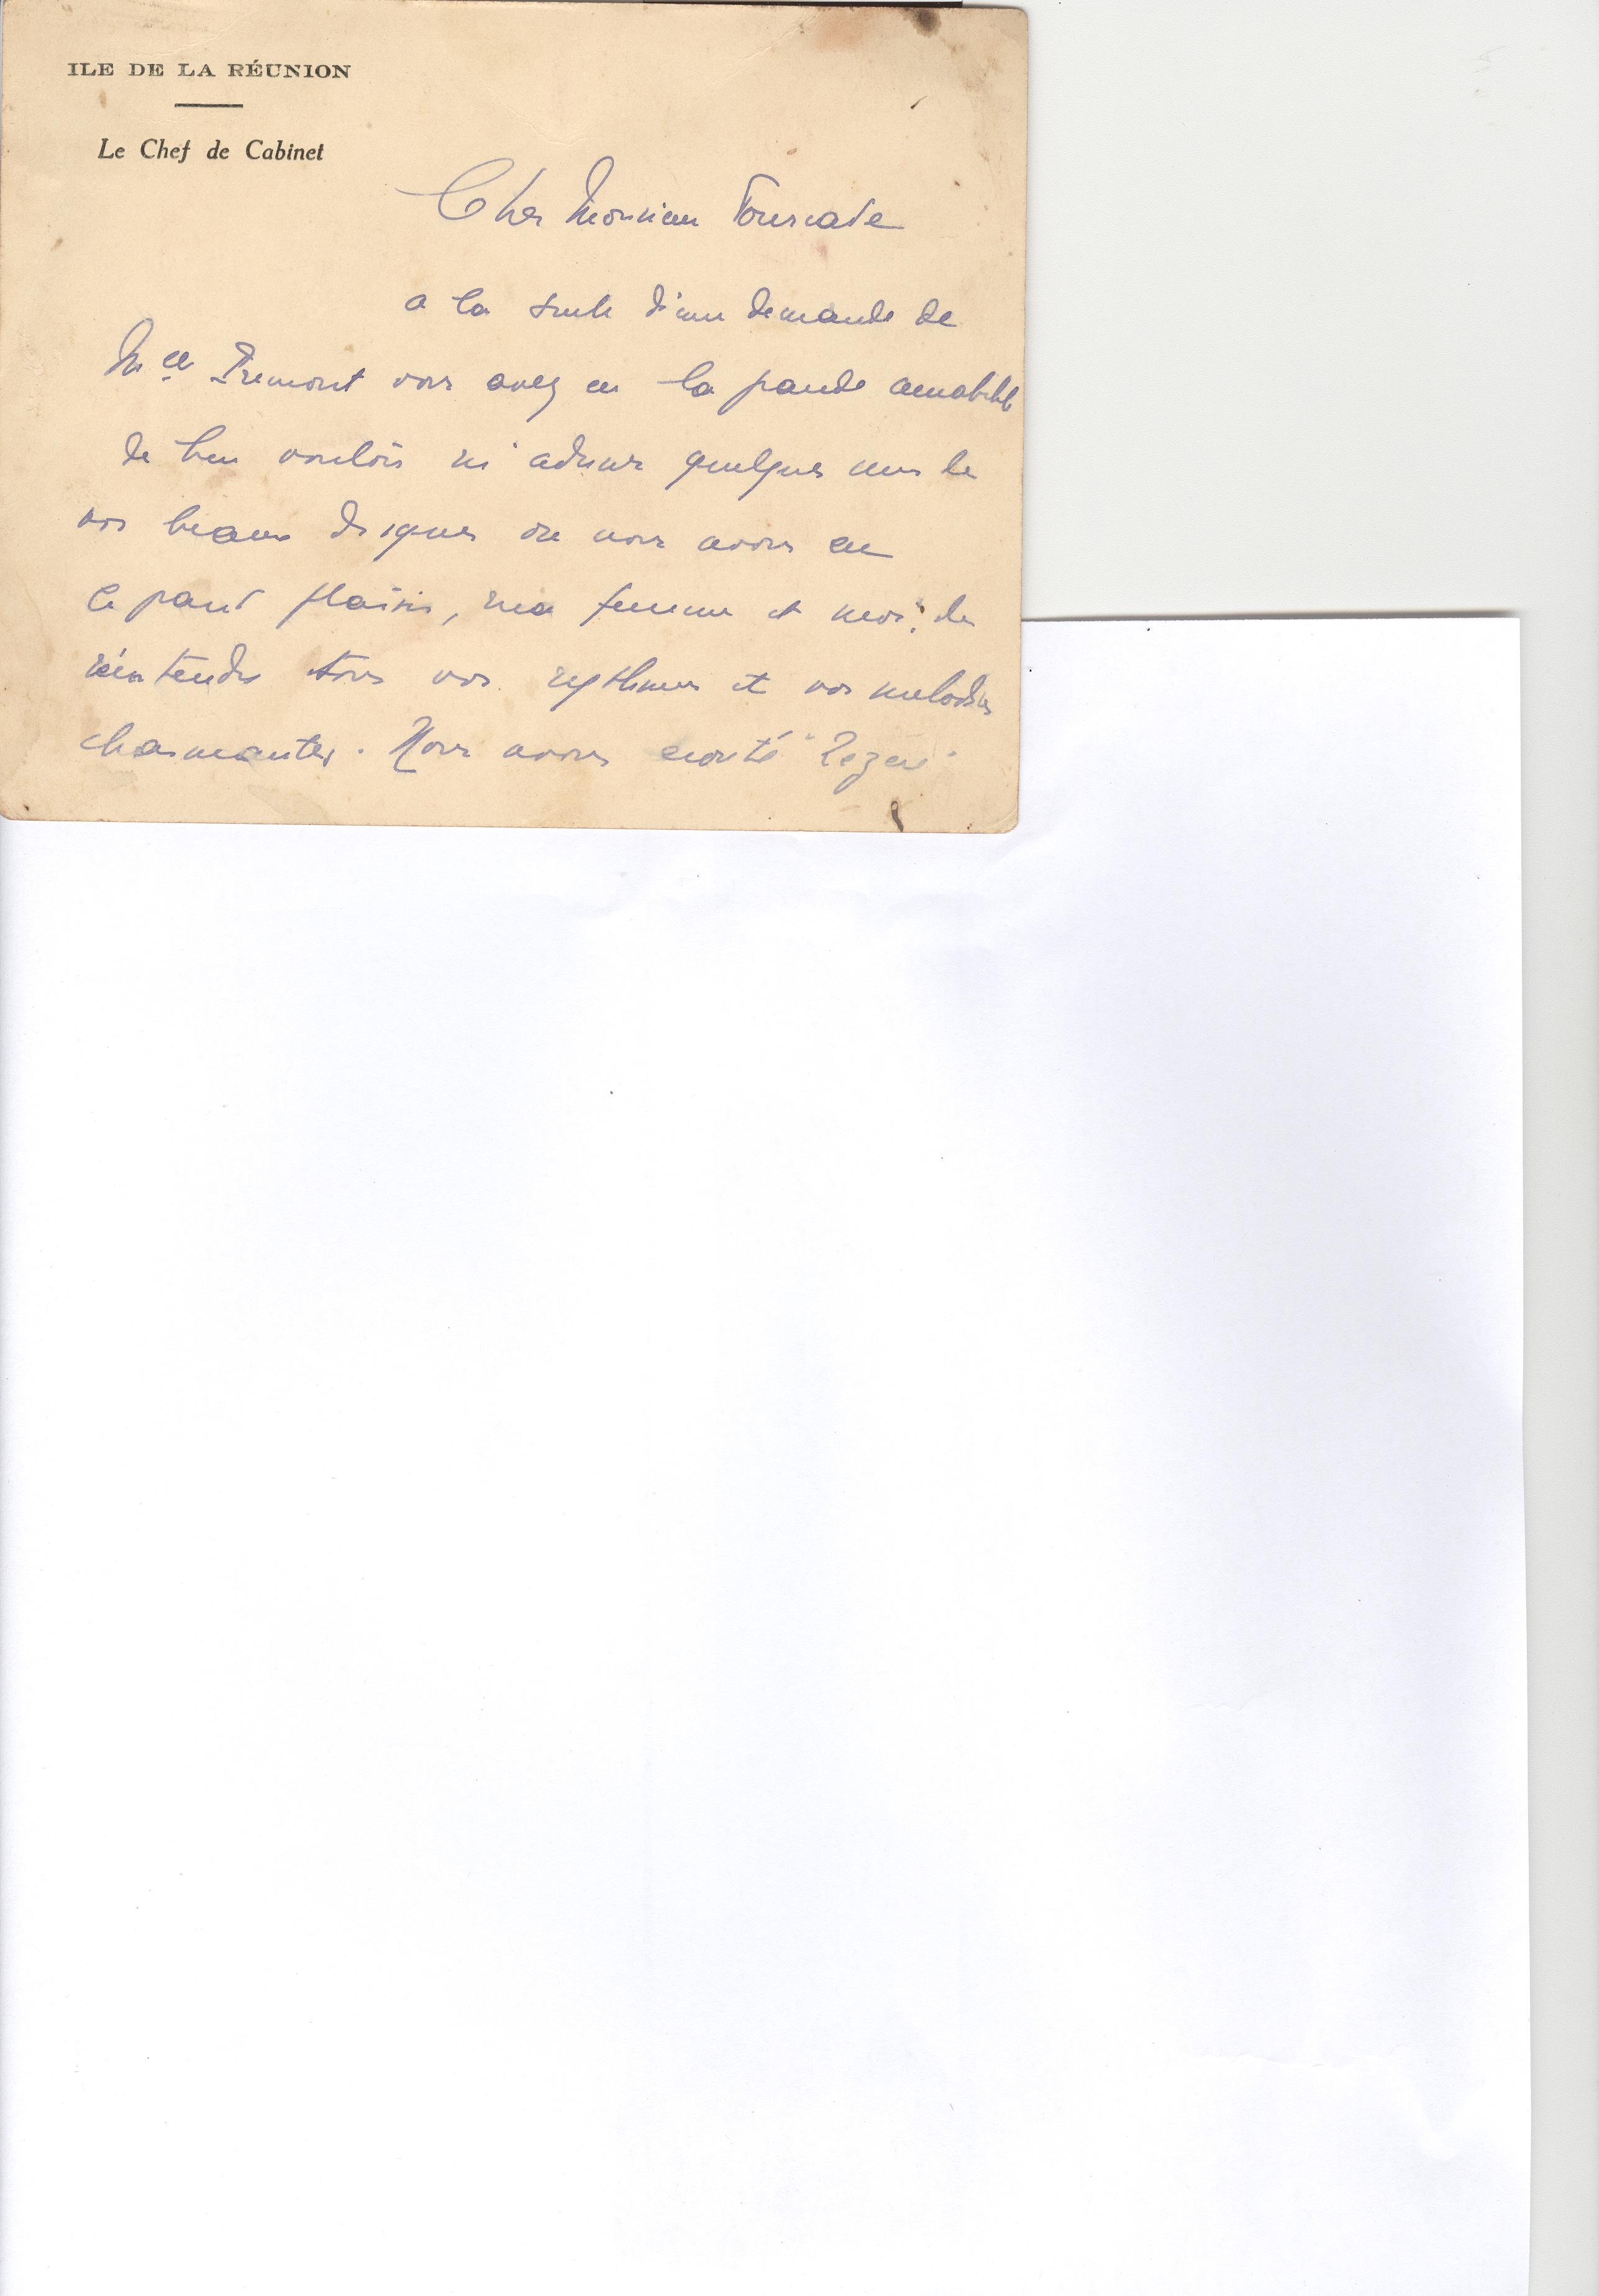 ILE DE LA RÉUNION
Le Chef de Cabinet
Cher Monsieur Fourcade
a la suite d'une demande de
Melle Fremont vous avez eu la grande amabilité
de bien vouloir m'adresser quelques uns de
vos beaux disques où nous avons eu
le grand plaisir, ma femme et moi, de
réentendre tous vos rythmes et vos melodies
charmantes. Nous avons ecouté "